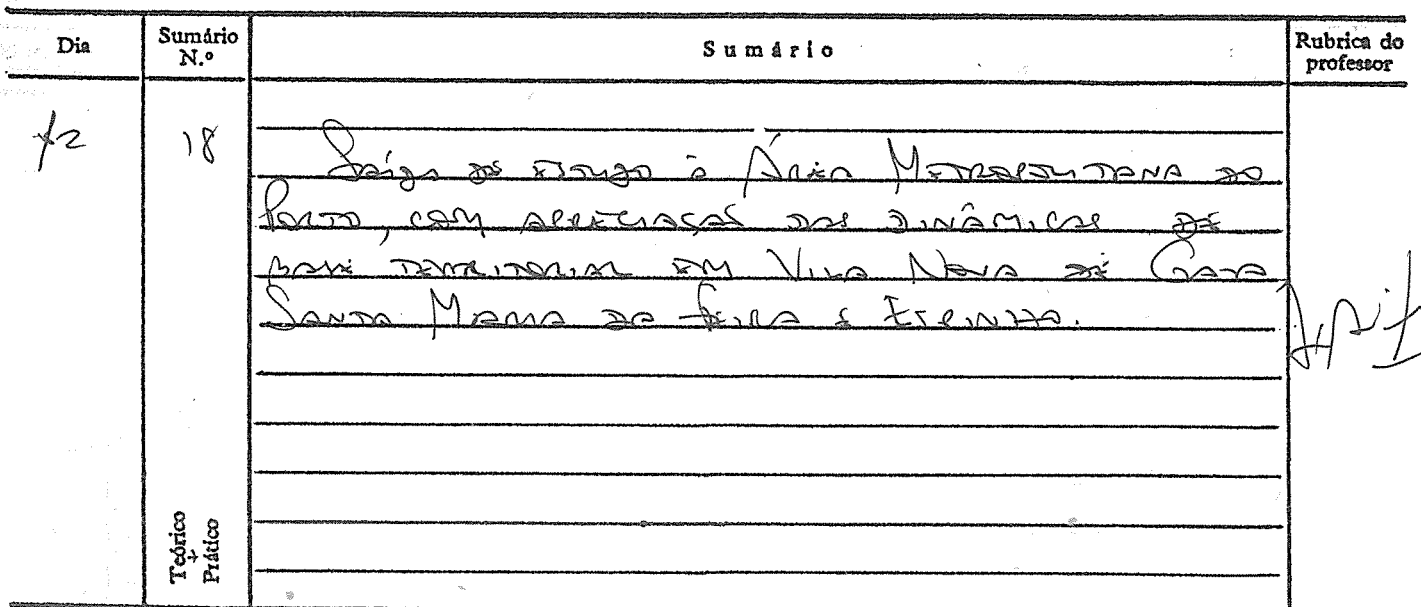 Dia Sumário N.º Sumário Rubrica do professor
12 18
Saída de estudo à Área Metropolitana do
Porto, com apreciação das dinâmicas de
base territorial em Vila Nova de Gaia
Santa Maria da Feira e Espinho.
Teórico + Prático